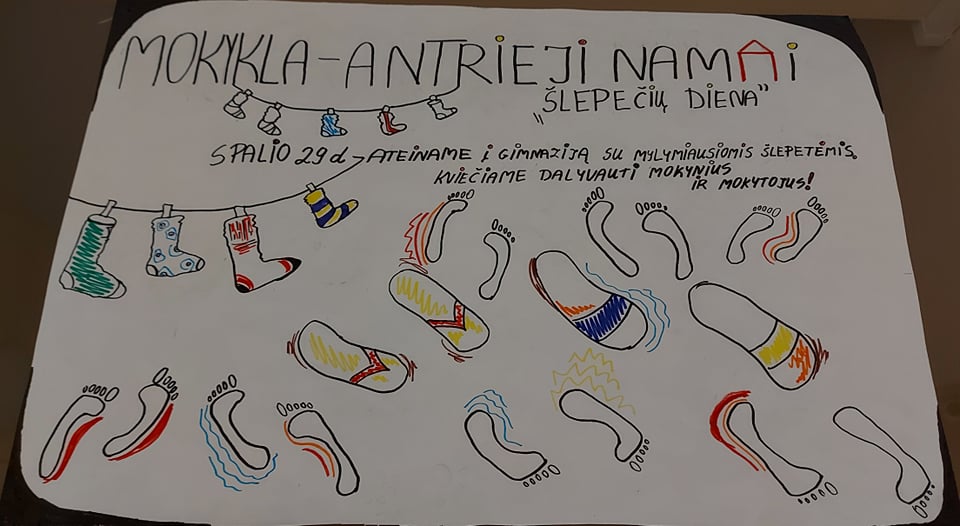 MOKYKLA-ANTRIEJI NAMAi
„ŠLEPEČIŲ DIENA”
SPALIO 29d - ATEINAME Į GIMNAZIJĄ SU MYLYMIAUSIOMIS ŠLEPETĖMIS.
KVIEČIAME DALYVAUTI MOKYNIUS
IR MOKYTOJUS!